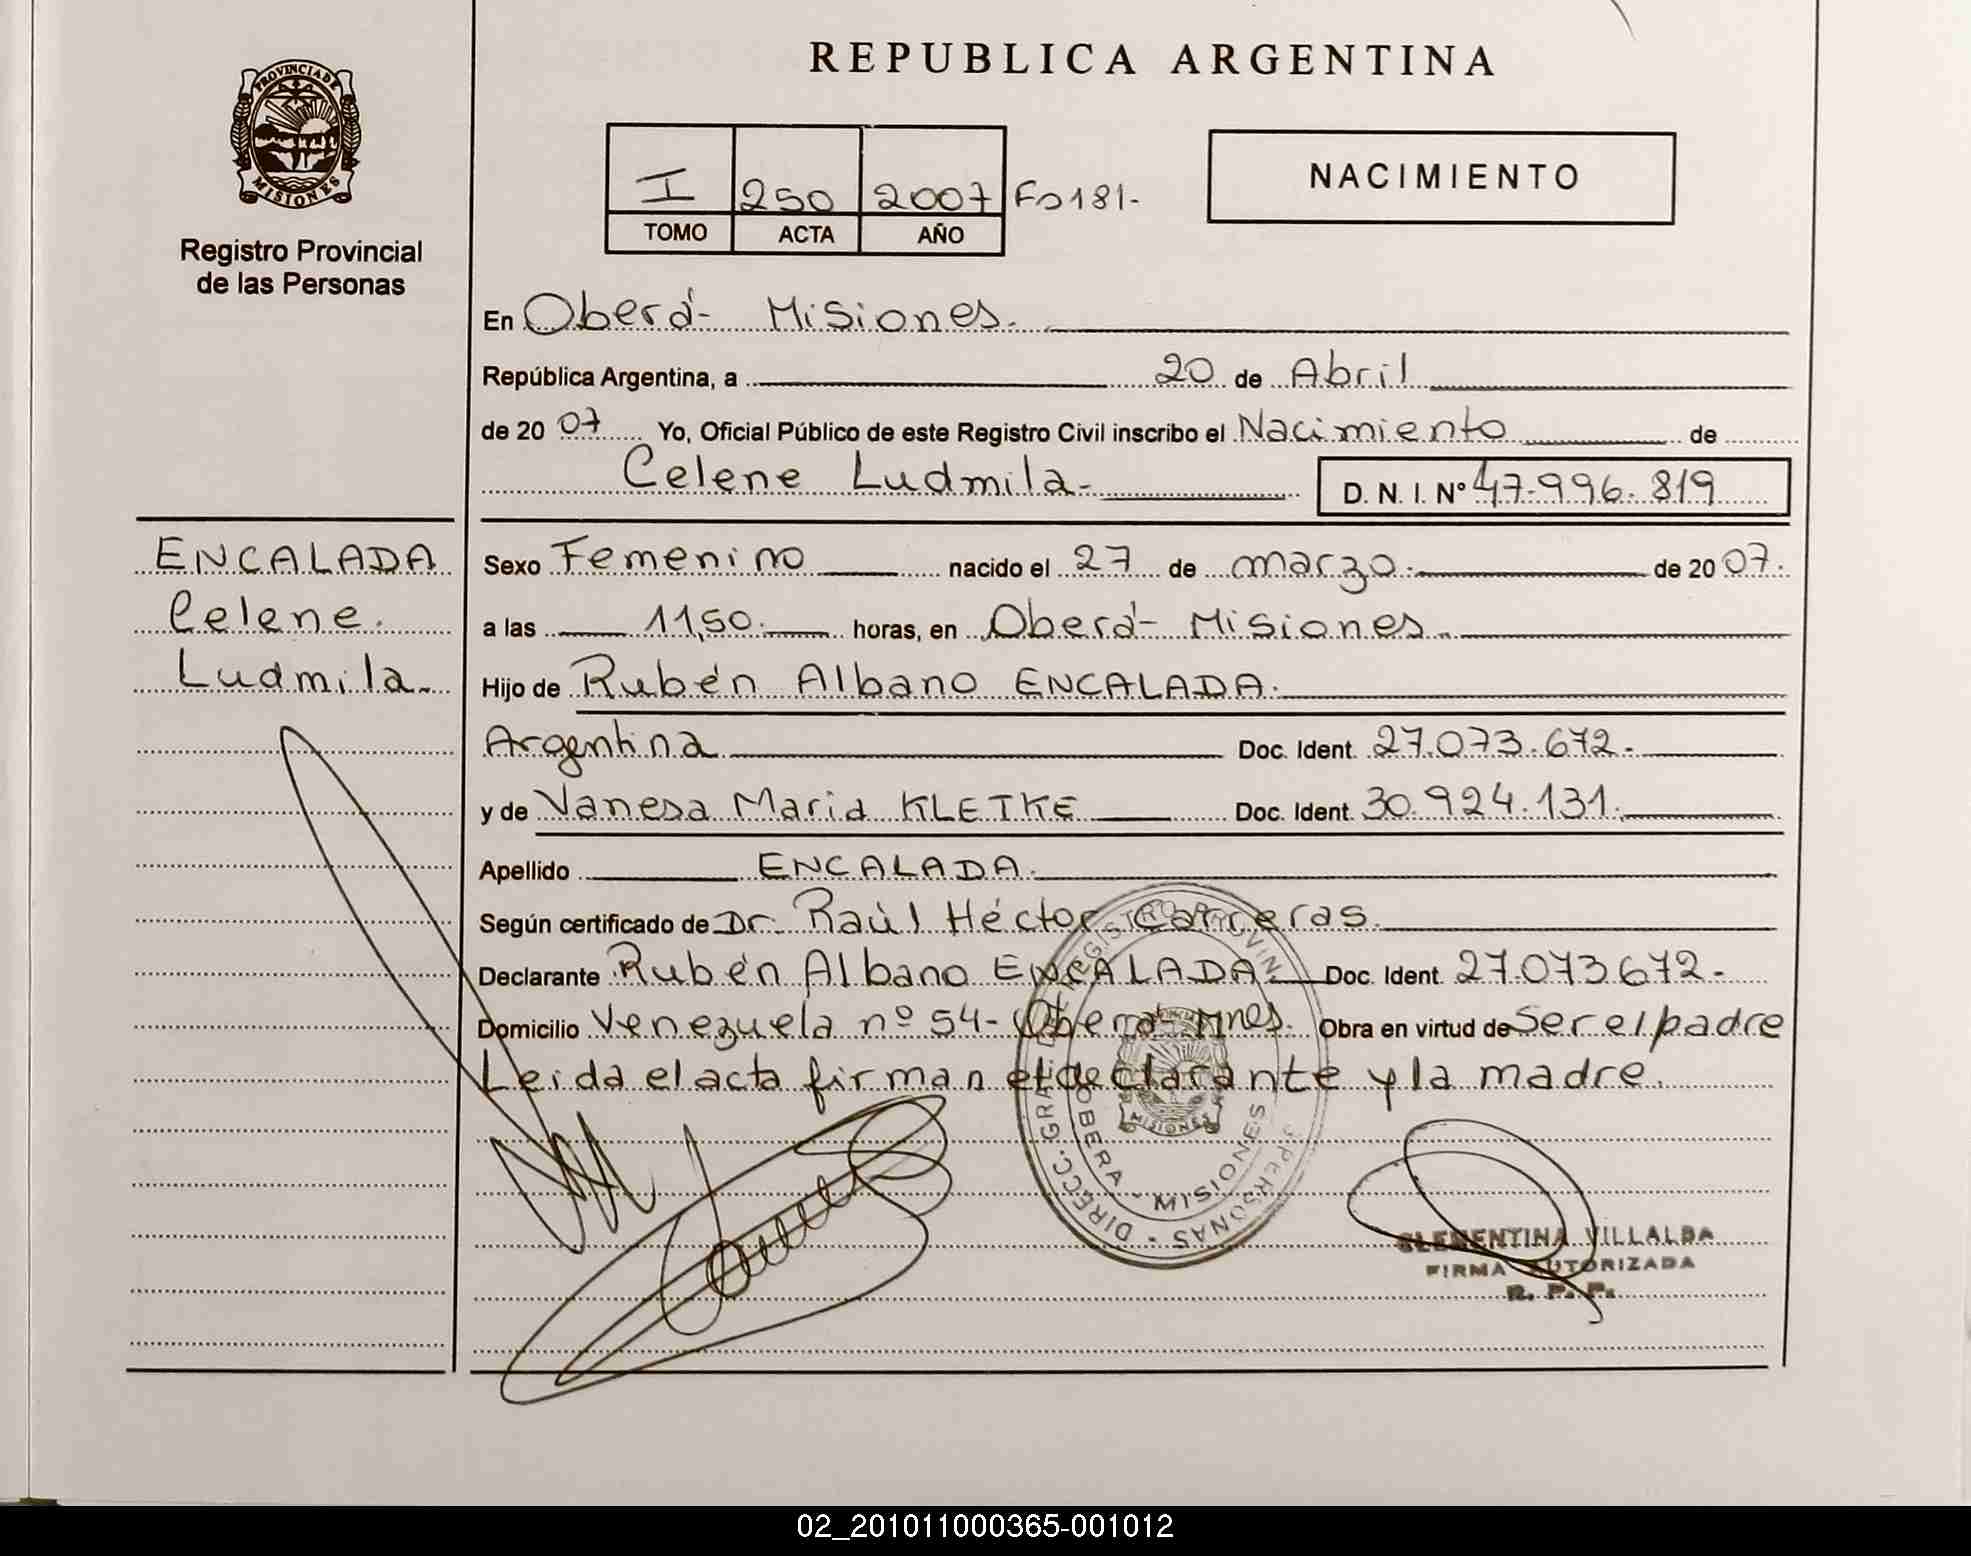 REPUBLICA ARGENTINA
PROVINCIA DE
MISIONES
Registro Provincial
de las Personas
I 250 2007 Fo 181-
TOMO ACTA AÑO
NACIMIENTO
En Oberá- Misiones.
República Argentina, a 20 de Abril
de 2007 Yo, Oficial Público de este Registro Civil inscribo el Nacimiento de
Celene Ludmila- D. N. I. Nº 47.996.819
ENCALADA
Celene.
Ludmila.
Sexo Femenino nacido el 27 de marzo. de 2007.
a las 11,50. horas, en Oberá- Misiones.
Hijo de Rubén Albano ENCALADA.
Argentina Doc. Ident. 27.073.672.-
y de Vanesa Maria KLETKE Doc. Ident. 30.924.131.
Apellido ENCALADA.
Según certificado de Dr. Raúl Héctor Carreras.
Declarante Rubén Albano ENCALADA. Doc. Ident. 27.073.672.-
Domicilio Venezuela nº 54- Oberá- Mnes. Obra en virtud de Ser el padre
Leida el acta firman el declarante y la madre.
DIRECC. GRAL. DE REGISTRO PROVIN PERSONAS
OBERA - MISIONES
MISIONES
CLEMENTINA VILLALBA
FIRMA AUTORIZADA
R. P. P.
02_201011000365-001012